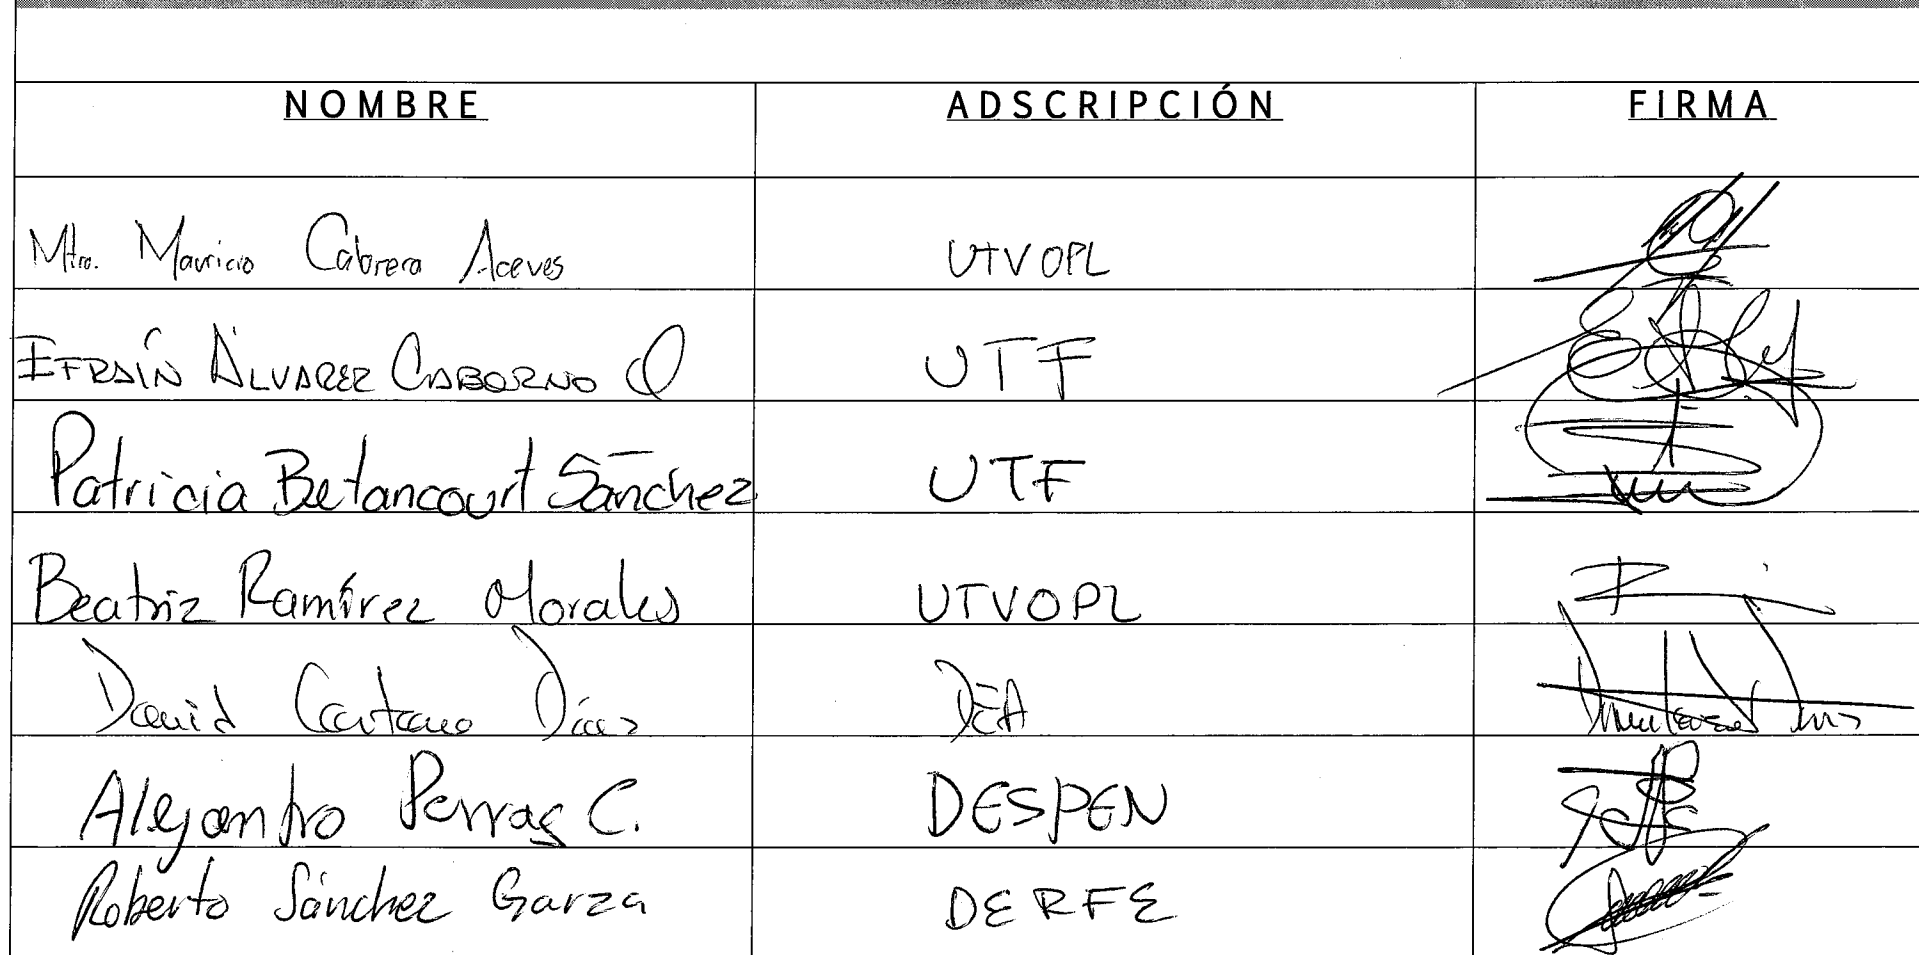 NOMBRE ADSCRIPCIÓN FIRMA
Mtro. Mauricio Cabrera Aceves UTVOPL
EFRAÍN ÁLVAREZ CABORNO O UTF
Patricia Betancourt Sánchez UTF
Beatriz Ramírez Morales UTVOPL
David Díaz DEA
Alejandro Porras C. DESPEN
Roberto Sánchez Garza DERFE